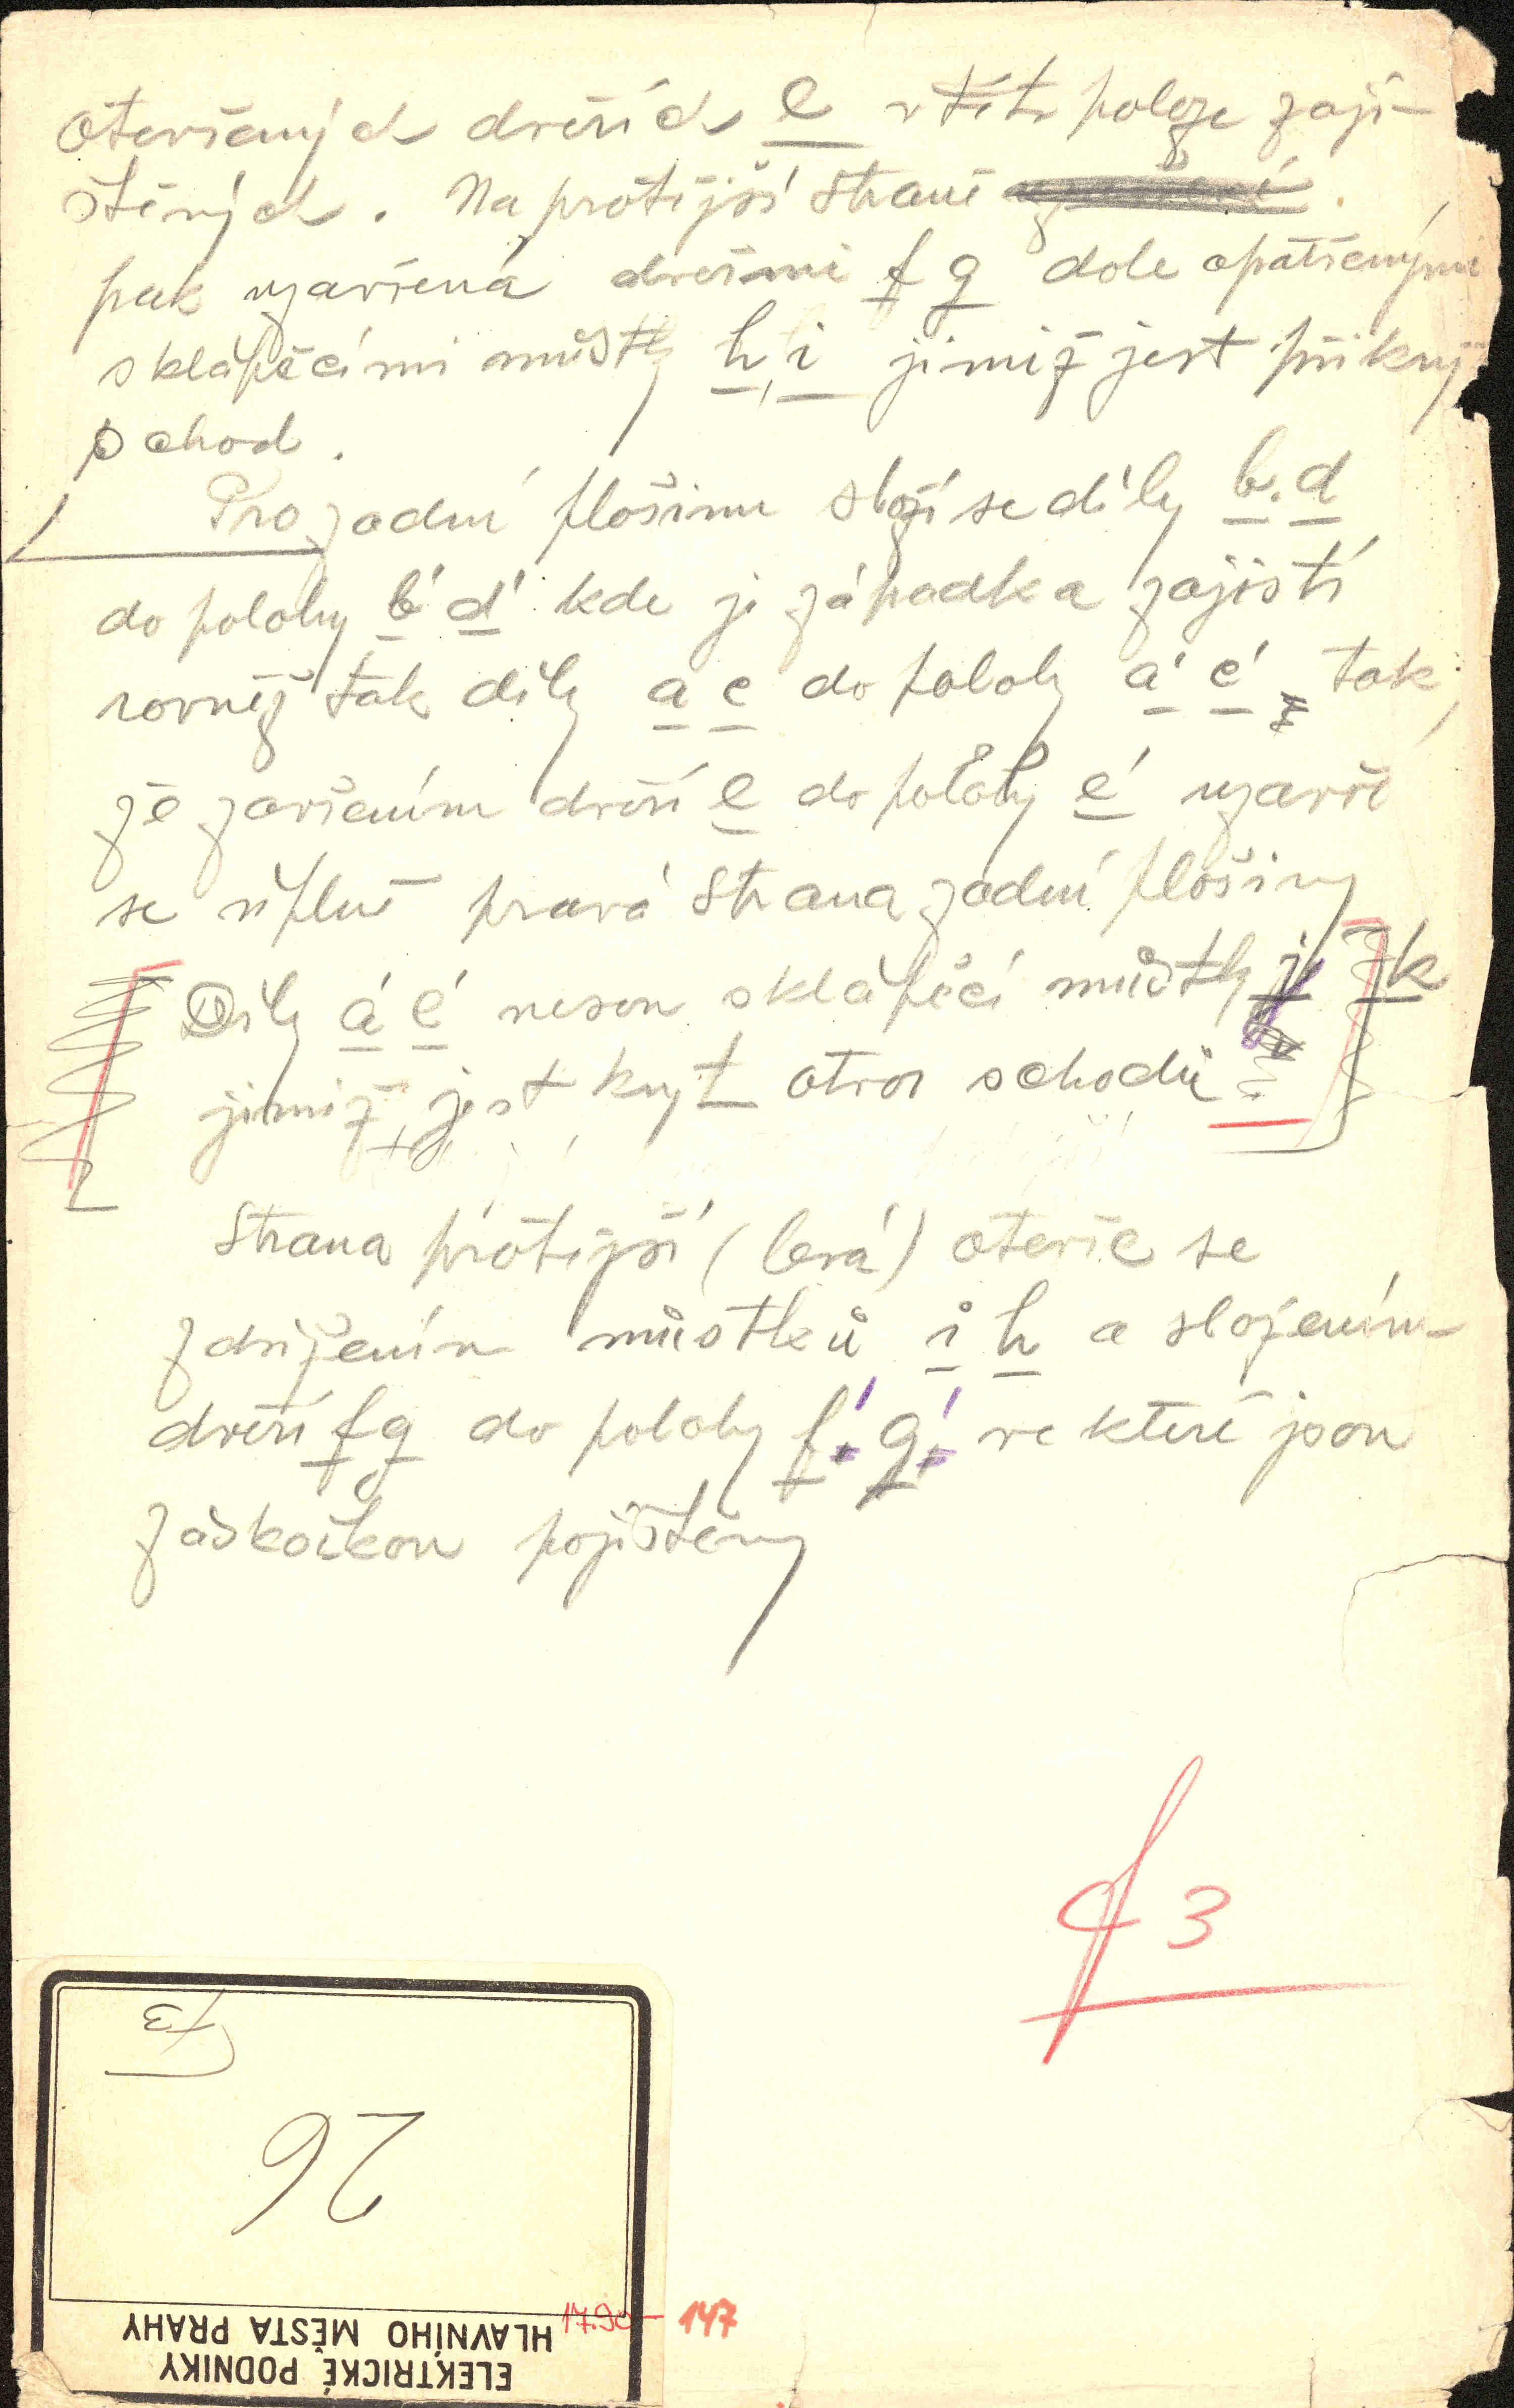 otevřených dveřích e v této poloze zaji-
štěných. Na protější straně
pak uzavřená dveřmi f g dole opatřenými
sklápěcími můstky h, i jimiž jest přikryt
schod.
Pro zadní plošinu složí se díly b. d
do polohy b' d' kde je západka zajistí
rovněž tak díly a c do polohy a' c' tak,
že zavřením dveří e do polohy e' uzavře
se úplně pravá strana zadní plošiny
Díly a' c' nesou sklápěcí můstky j k
jimiž jest kryt otvor schodů
Strana protější (levá) otevře se
zdvižením můstků i h a složením
dveří f g do polohy f' g' ve které jsou
záskočkou pojištěny
3
26
ELEKTRICKÉ PODNIKY
HLAVNÍHO MĚSTA PRAHY
17.90- 147